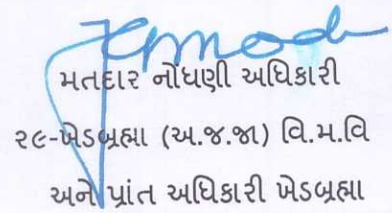 મતદાર નોંધણી અધિકારી
૨૯-ખેડબ્રહ્મા (અ.જ.જા) વિ.મ.વિ
અને પ્રાંત અધિકારી ખેડબ્રહ્મા